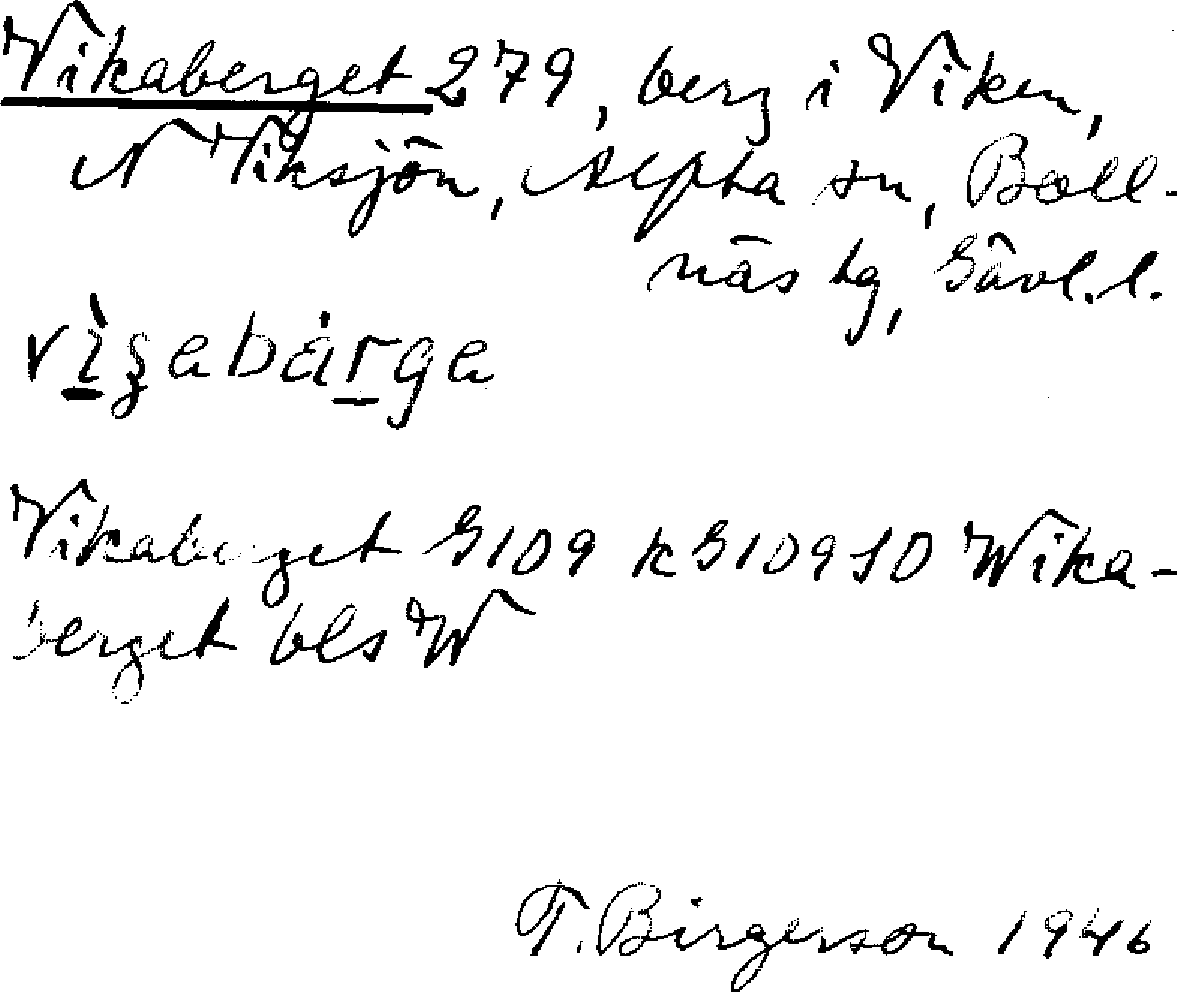 Vikaberget 279, berg i Viken,
N Viksjön, Alfta sn, Boll-
näs tg, Gävl.l.
Vikaberget G109 k G109 SO Wika-
berget bls W
T. Birgerson 1946